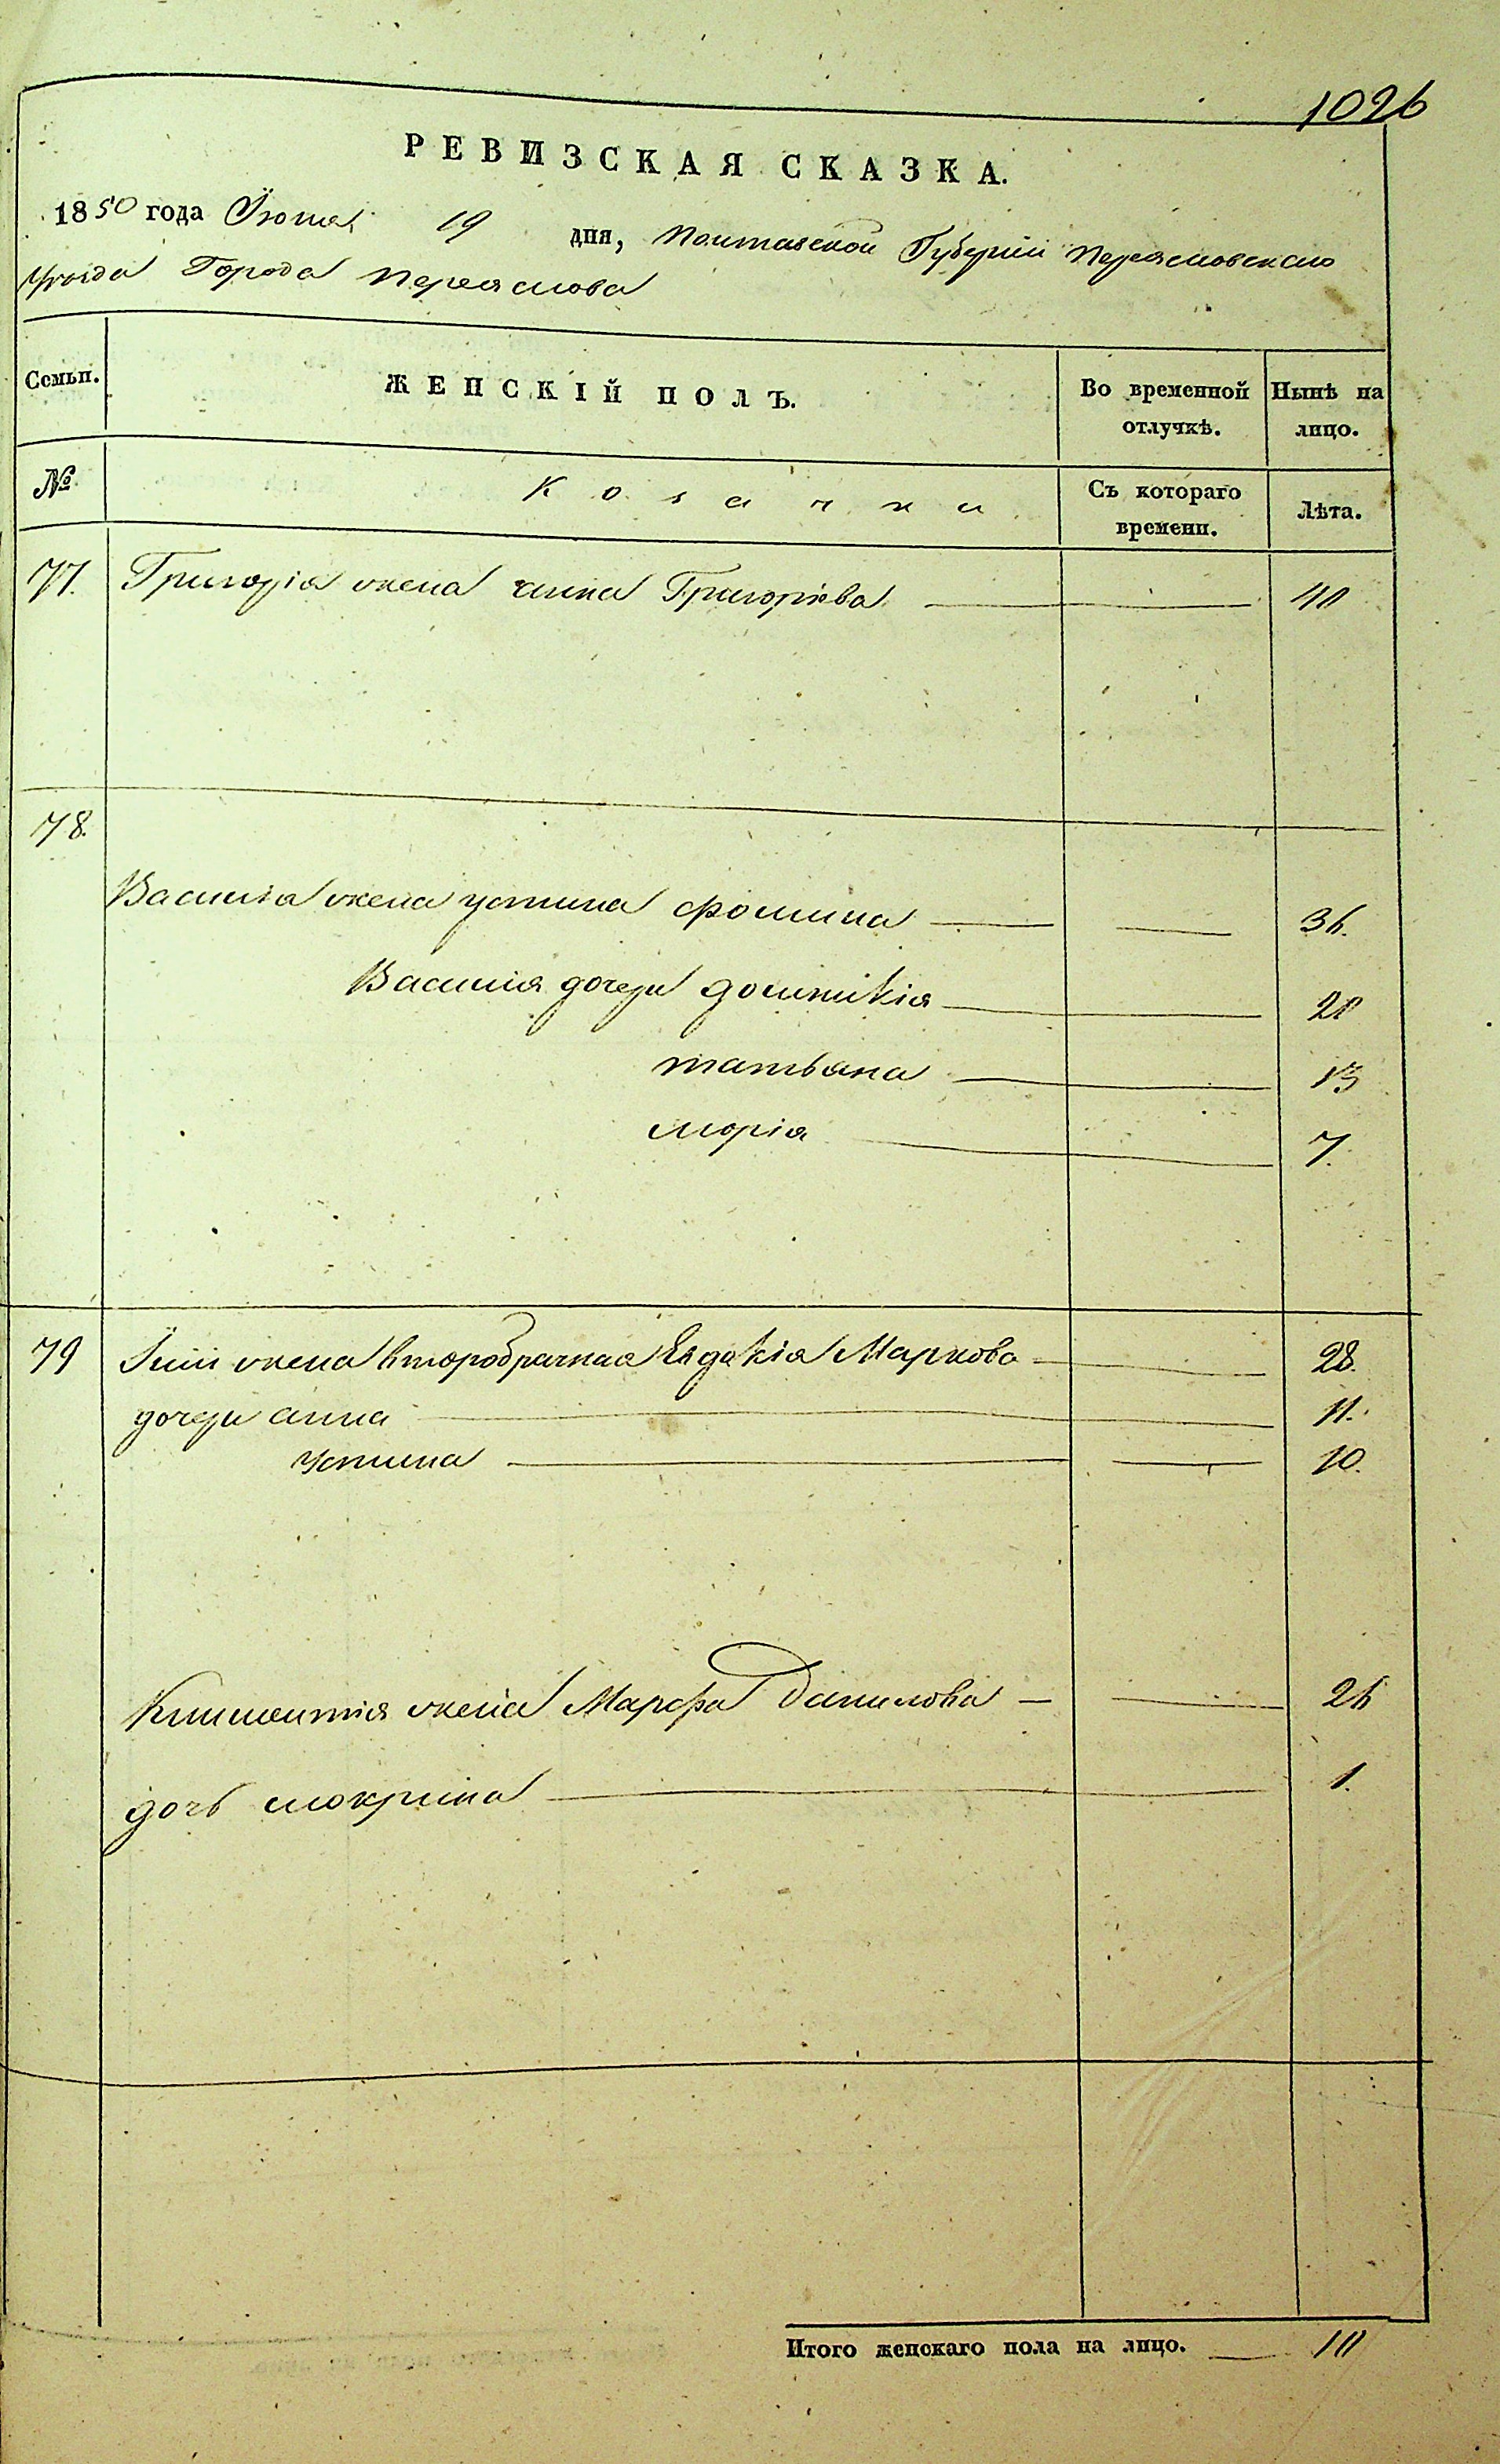 1026
РЕВИЗСКАЯ СКАЗКА.
1850 года Іюня 19 дня, Полтавской Губерніи Переясловскаго
уѣзда Города Переяслова
Семьи. ЖЕНСКІЙ ПОЛЪ. Во временной отлучкѣ. Нынѣ на лицо.
№ Козачки Съ котораго времени. Лѣта.
77. Григорія жена анна Григорьева 40
78.
Василія жена устина фомина 36.
Василія дочери домникія 20
татьяна 13
морія 7.
79 жена второбрачная Евдокія Маркова 28.
дочери анна 11.
устина 10.
Климентія жена Марфа Данилова 26
дочь мокрина 1.
Итого женскаго пола на лицо. 10